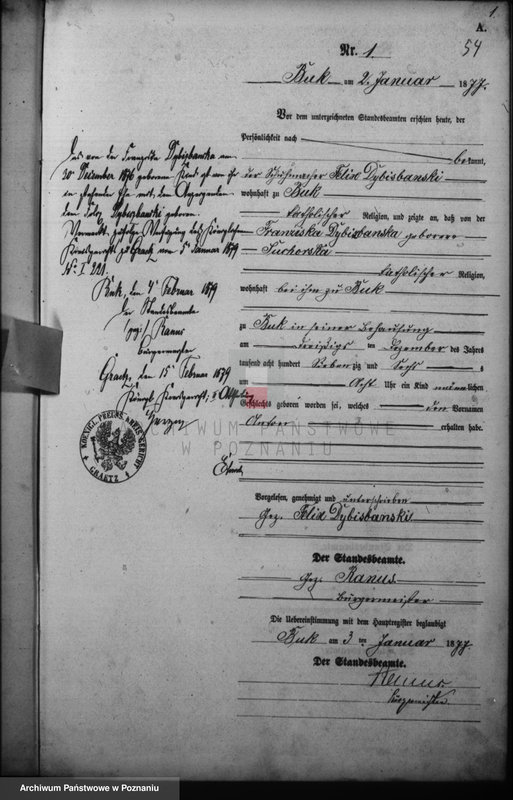 1.
A.
54
Nr. 1.
Buk am 2. Januar 1877.
Vor dem unterzeichneten Standesbeamten erschien heute, der
Persönlichkeit nach
bekannt,
der Schuhmacher Felix Dybisbanski
wohnhaft zu Buk
katholischer Religion, und zeigte an, daß von der
Franziska Dybisbanska geborene
Suchorska
katholischer Religion,
wohnhaft bei ihm zu Buk
zu Buk in seiner Behausung
am dreißigsten Dezember des Jahres
tausend acht hundert siebenzig und sechs
um acht Uhr ein Kind männlichen
Geschlechts geboren worden sei, welches den Vornamen
Anton
erhalten habe.
Vorgelesen, genehmigt und unterschrieben
Gez. Felix Dybisbanski
Der Standesbeamte.
Gez. Ranus
Bürgermeister
Die Uebereinstimmung mit dem Hauptregister beglaubigt
Buk am 3ten Januar 1877
Der Standesbeamte.
Ranus
Bürgermeister.
Das von der Franziska Dybisbanska am
30 Dezember 1876 geborene Kind
in stehender Ehe mit dem
Dybizbanski geboren.
Vermerkt zufolge Verfügung des Königlichen
Kreisgerichts zu Graetz vom 5 Januar 1879
No I 221.
Buk, den 4 Februar 1879
Der Standesbeamte
gez. Ranus
Bürgermeister
Graetz, den 15 Februar 1879
Königl. Kreisgericht, Abtheilung
KÖNIGL. PREUSS. KREIS-GERICHT
GRAETZ
ARCHIWUM PAŃSTWOWE
W POZNANIU
Archiwum Państwowe w Poznaniu